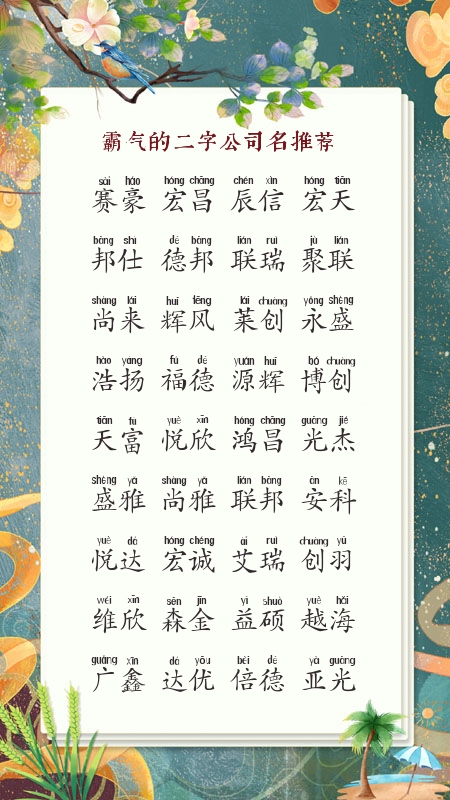 霸气的二字公司名推荐
sài háo hóng chāng chén xìn hóng tiān
赛豪 宏昌 辰信 宏天
bāng shì dé bāng lián ruì jù lián
邦仕 德邦 联瑞 聚联
shàng lái huī fēng lái chuàng yǒng shèng
尚来 辉风 莱创 永盛
hào yáng fú dé yuán huī bó chuàng
浩扬 福德 源辉 博创
tiān fù yuè xīn hóng chāng guāng jié
天富 悦欣 鸿昌 光杰
shèng yǎ shàng yǎ lián bāng ān kē
盛雅 尚雅 联邦 安科
yuè dá hóng chéng ài ruì chuàng yǔ
悦达 宏诚 艾瑞 创羽
wéi xīn sēn jīn yì shuò yuè hǎi
维欣 森金 益硕 越海
guǎng xīn dá yōu bèi dé yà guāng
广鑫 达优 倍德 亚光